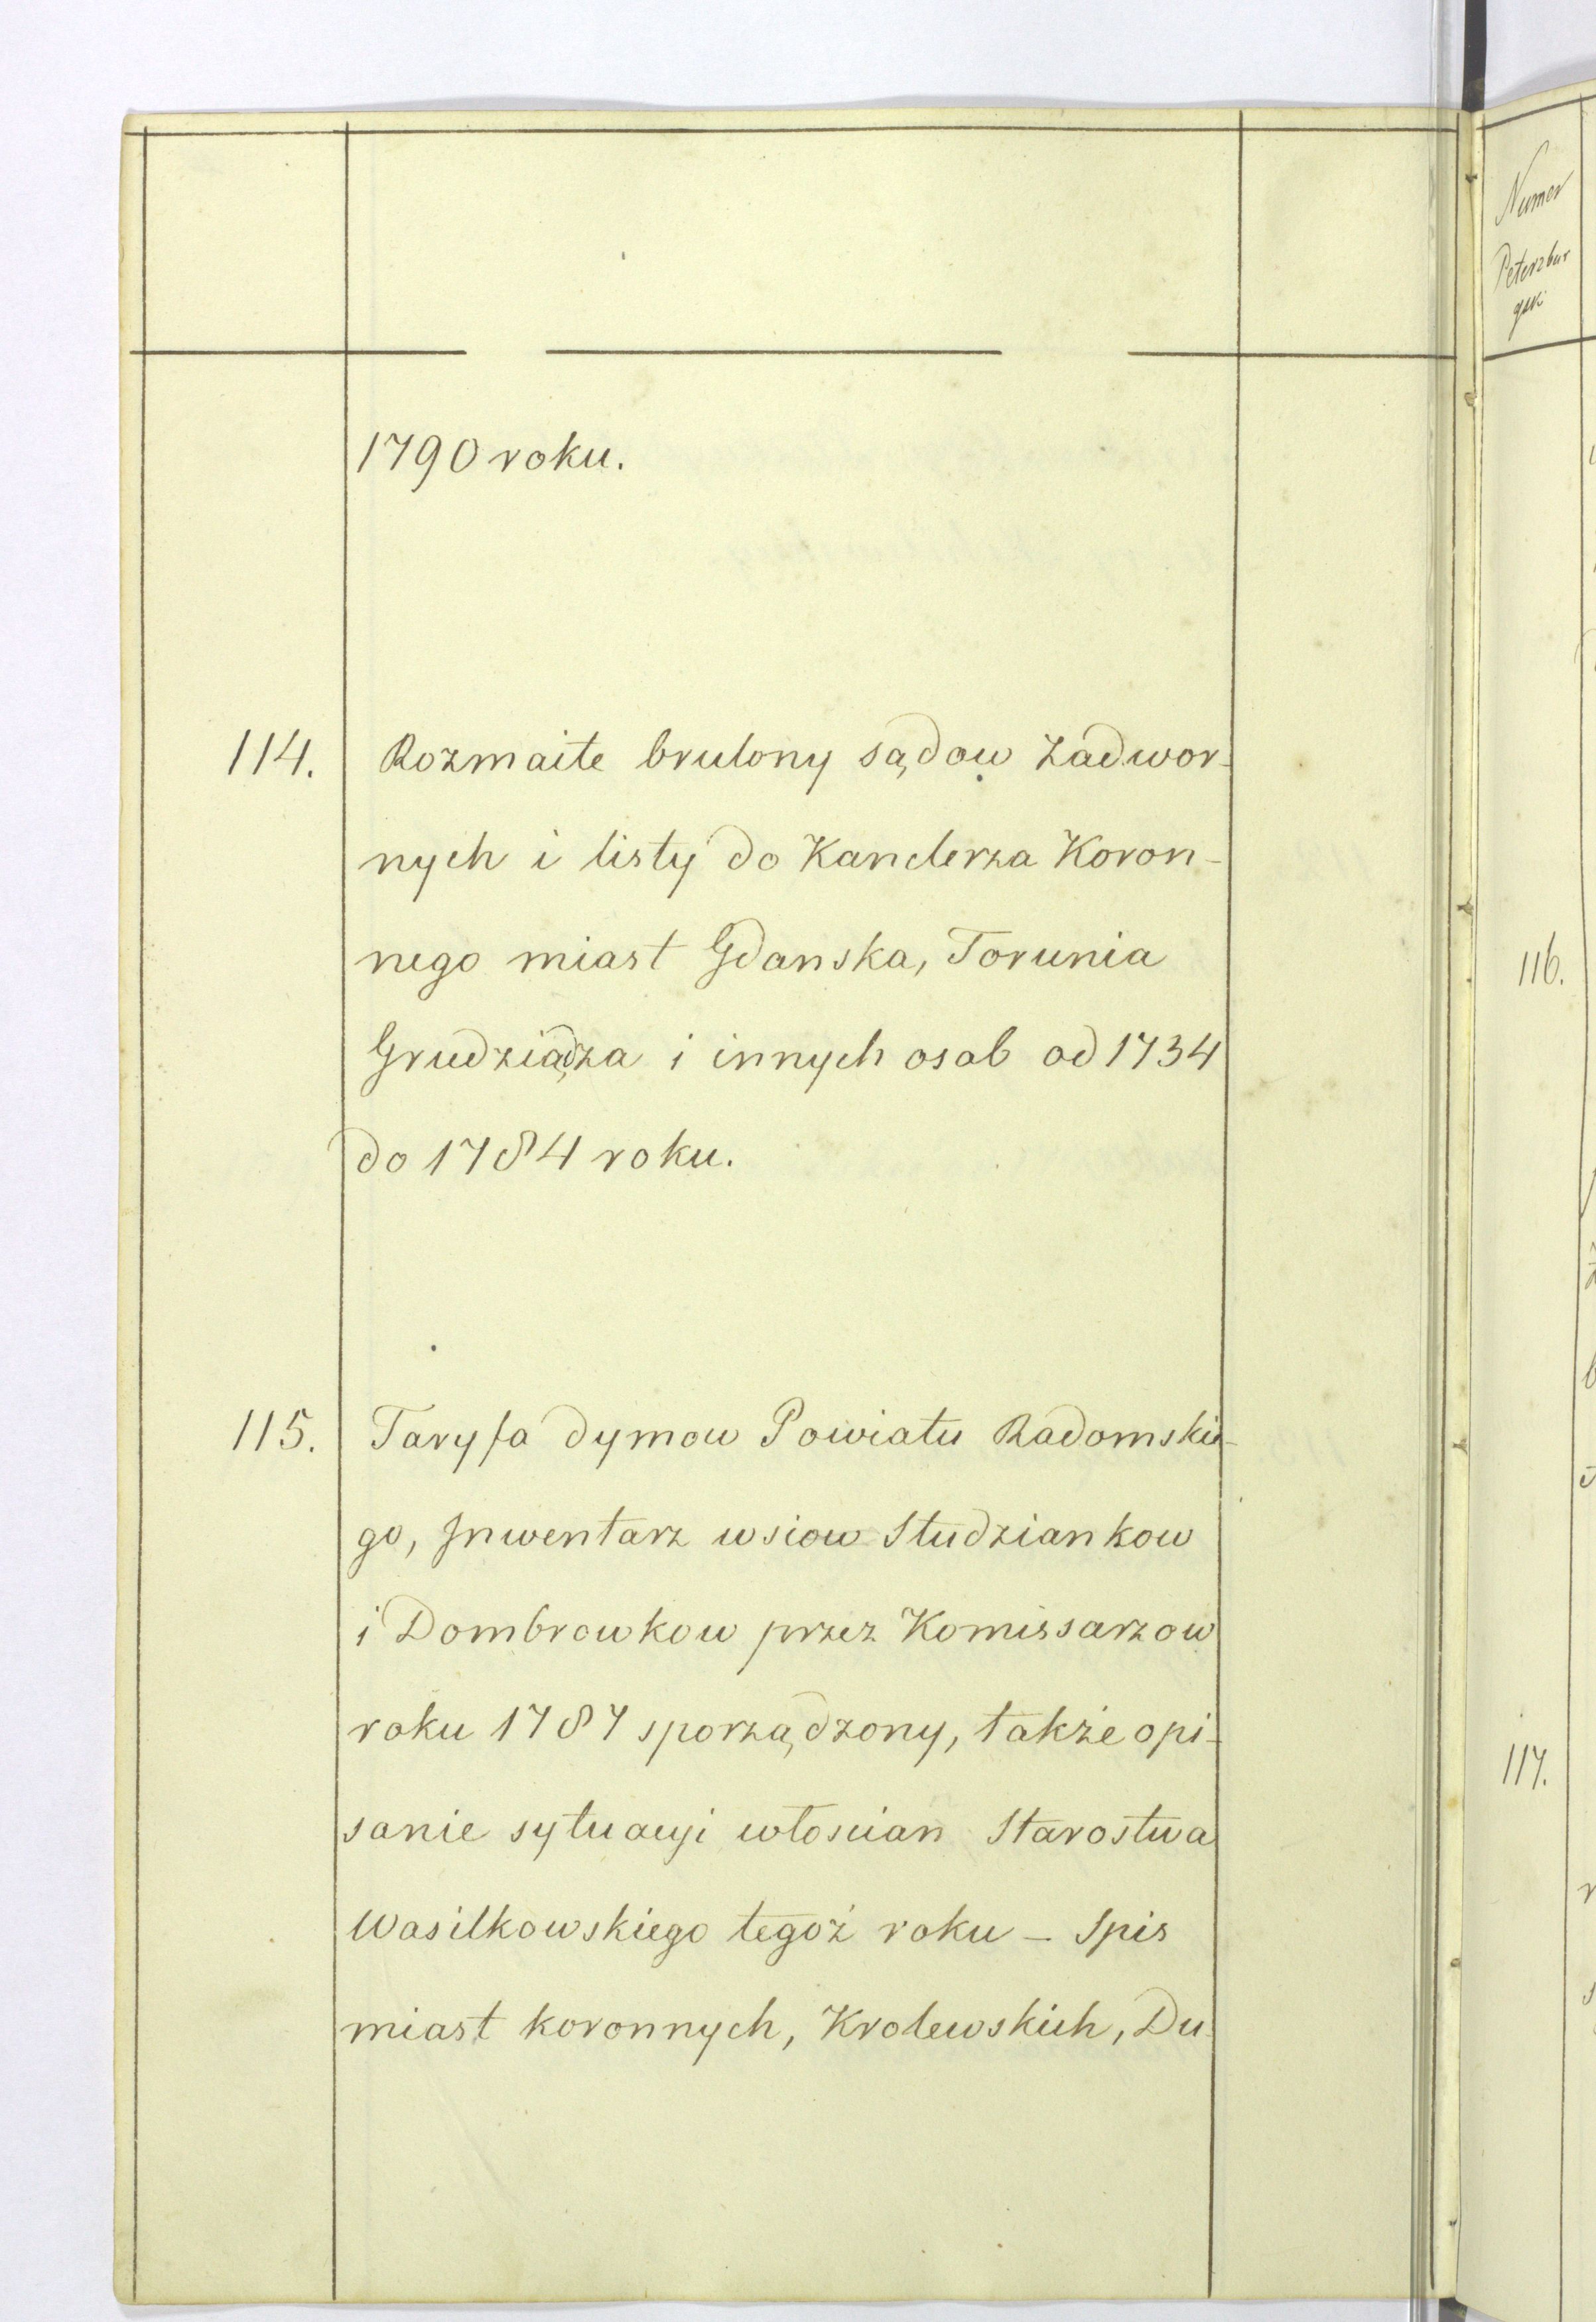 1790 roku.
114. Rozmaite brulony sądow Zadwor-
nych i listy do Kanclerza Koron-
nego miast Gdanska, Torunia
Grudziądza i innych osob od 1734
do 1784 roku.
115. Taryfa dymow Powiatu Radomskie-
go, Inwentarz wsiow Studziankow
i Dombrowkow przez Komissarzow
roku 1787 sporządzony, także opi-
sanie sytuacyi włoscian Starostwa
Wasilkowskiego tegoż roku – Spis
miast koronnych, Krolewskich, Du-
Numer
Peterzbur
gski
116.
117.